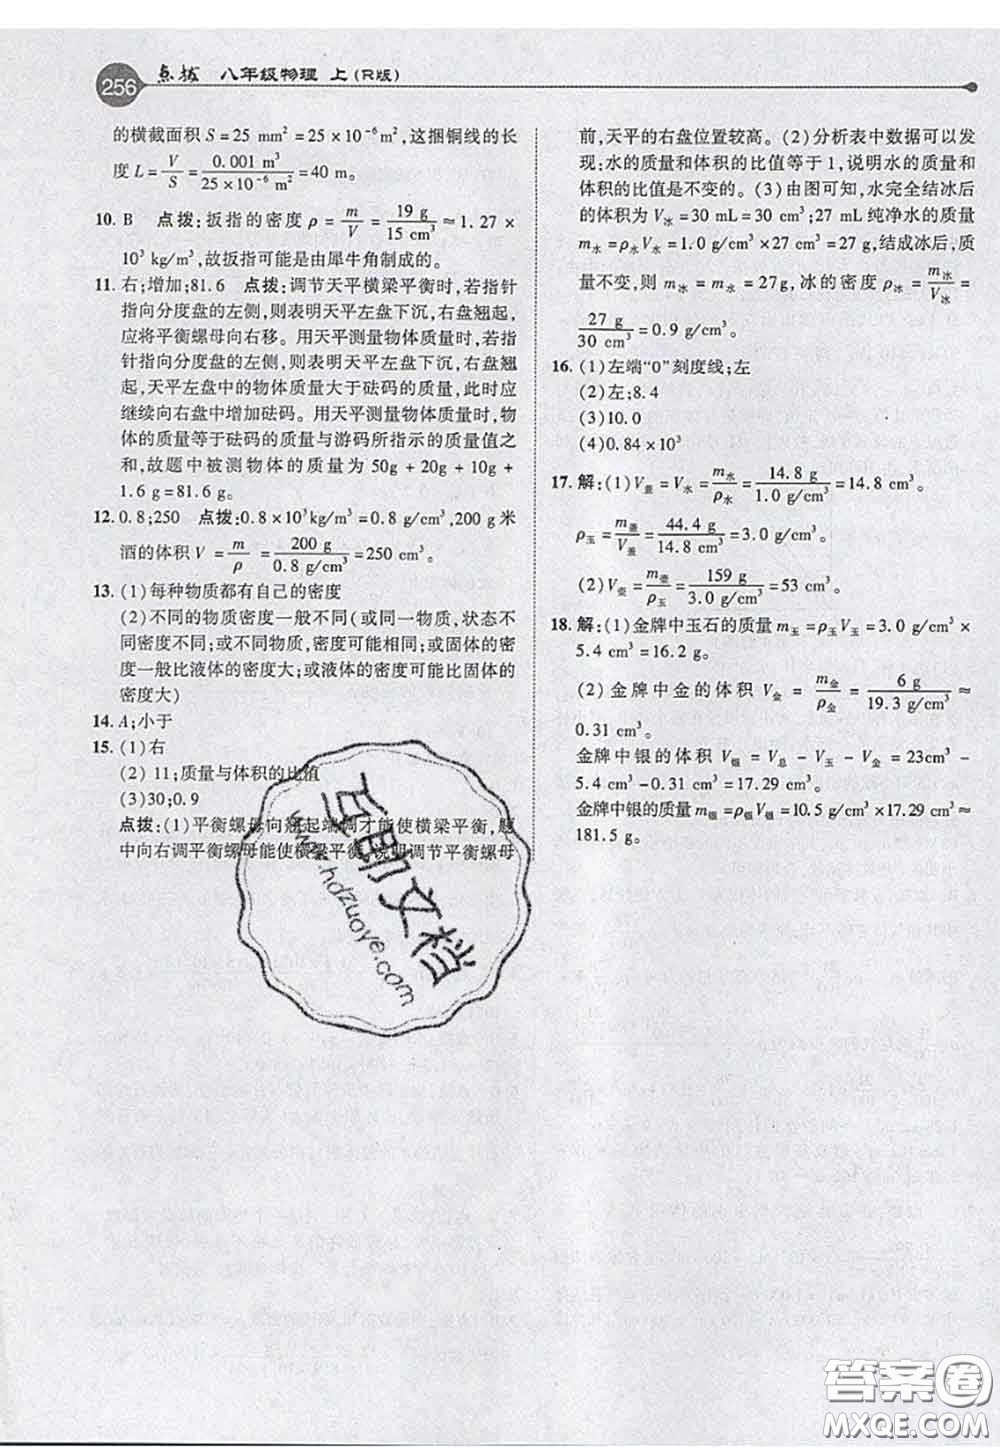 256 点拨 八年级物理 上(R版)
的横截面积 S = 25 mm² = 25 × 10⁻⁶ m², 这捆铜线的长
度 L = V/S = 0.001 m³/(25 × 10⁻⁶ m²) = 40 m。
10. B 点拨:扳指的密度 ρ = m/V = 19 g/15 cm³ ≈ 1.27 ×
10³ kg/m³,故扳指可能是由犀牛角制成的。
11. 右;增加;81.6 点拨:调节天平横梁平衡时,若指针
指向分度盘的左侧,则表明天平左盘下沉,右盘翘起,
应将平衡螺母向右移。用天平测量物体质量时,若指
针指向分度盘的左侧,则表明天平左盘下沉,右盘翘
起,天平左盘中的物体质量大于砝码的质量,此时应
继续向右盘中增加砝码。用天平测量物体质量时,物
体的质量等于砝码的质量与游码所指示的质量值之
和,故题中被测物体的质量为 50g + 20g + 10g +
1.6 g = 81.6 g。
12. 0.8;250 点拨:0.8 × 10³ kg/m³ = 0.8 g/cm³, 200 g 米
酒的体积 V = m/ρ = 200 g/(0.8 g/cm³) = 250 cm³。
13. (1)每种物质都有自己的密度
(2)不同的物质密度一般不同(或同一物质,状态不
同密度不同;或不同物质,密度可能相同;或固体的密
度一般比液体的密度大;或液体的密度可能比固体的
密度大)
14. A;小于
15. (1)右
(2) 11;质量与体积的比值
(3)30;0.9
点拨:(1)平衡螺母向翘起端调才能使横梁平衡,题
中向右调平衡螺母能使横梁平衡,说明调节平衡螺母
前,天平的右盘位置较高。(2)分析表中数据可以发
现:水的质量和体积的比值等于1,说明水的质量和
体积的比值是不变的。(3)由图可知,水完全结冰后
的体积为 V冰 = 30 mL = 30 cm³;27 mL 纯净水的质量
m水 = ρ水V水 = 1.0 g/cm³ × 27 cm³ = 27 g,结成冰后,质
量不变,则 m冰 = m水 = 27g,冰的密度 ρ冰 = m冰/V冰 =
27 g/30 cm³ = 0.9 g/cm³。
16. (1)左端“0”刻度线;左
(2)左;8.4
(3)10.0
(4)0.84×10³
17. 解:(1)V盖 = V水 = m水/ρ水 = 14.8 g/(1.0 g/cm³) = 14.8 cm³,
ρ玉 = m盖/V盖 = 44.4 g/14.8 cm³ = 3.0 g/cm³。
(2)V壶 = m壶/ρ玉 = 159 g/(3.0 g/cm³) = 53 cm³。
18. 解:(1)金牌中玉石的质量 m玉 = ρ玉V玉 = 3.0 g/cm³ ×
5.4 cm³ = 16.2 g。
(2)金牌中金的体积 V金 = m金/ρ金 = 6 g/(19.3 g/cm³) ≈
0.31 cm³。
金牌中银的体积 V银 = V总 - V玉 - V金 = 23cm³ -
5.4 cm³ - 0.31 cm³ = 17.29 cm³。
金牌中银的质量 m银 = ρ银V银 = 10.5 g/cm³ × 17.29 cm³ ≈
181.5 g。
互助文档
www.hdzuoye.com
答案圈
MXQE.COM